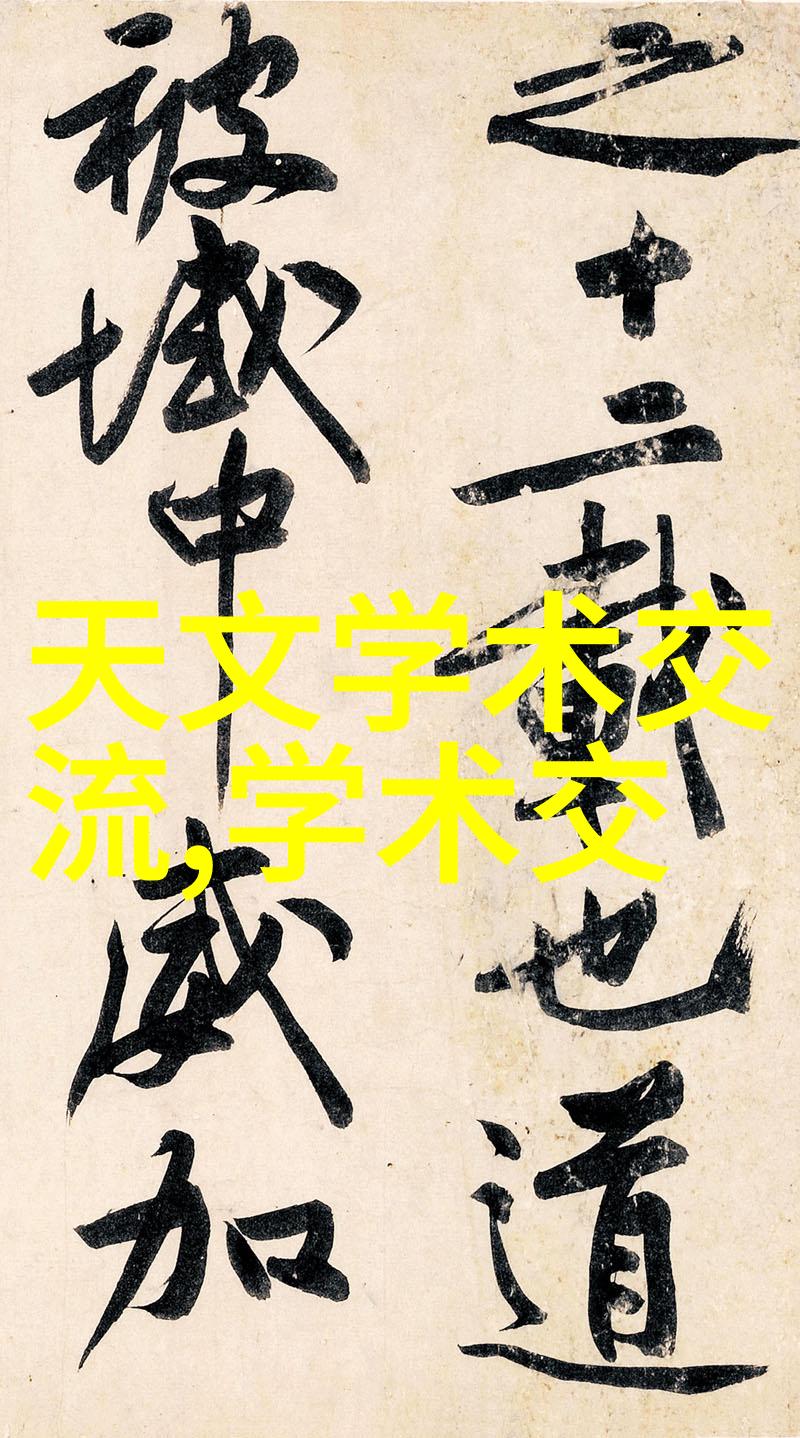 之十二載也道
被域中威加
天文学术交
流,学术交